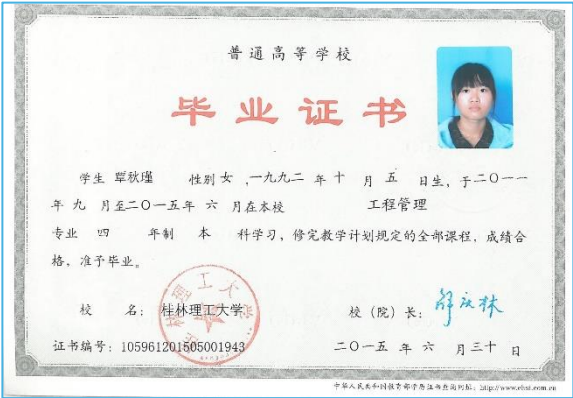 普通高等学校
毕业证书
学生 覃秋瑾 性别 女 ,一九九二 年 十 月 五 日生,于二〇一一
年 九 月至二〇一五年 六 月在本校 工程管理
专业 四 年制 本 科学习,修完教学计划规定的全部课程,成绩合
格,准予毕业。
校 名: 桂林理工大学 校(院)长:
证书编号: 105961201505001943 二〇一五 年 六 月 三十 日
中华人民共和国教育部学历证书查询网址: http://www.chsi.com.cn